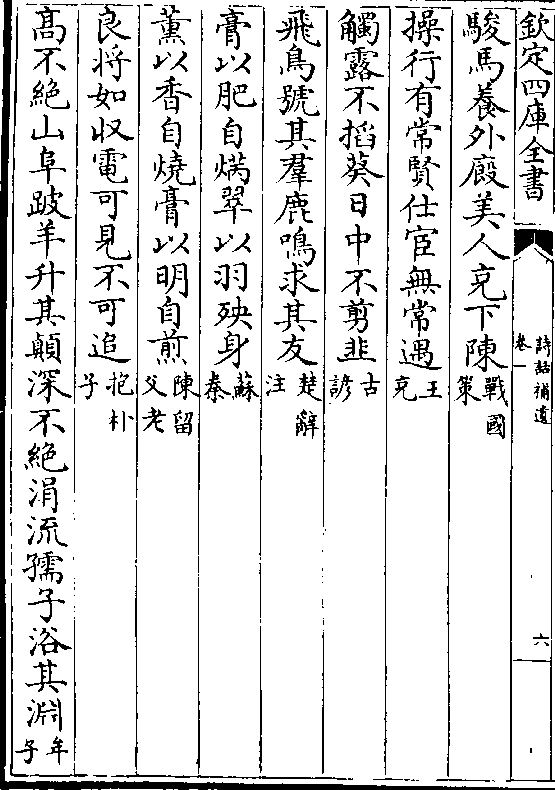 欽定四庫全書
詩話補遺
卷一
六
駿馬養外廄美人充下陳戰國策
操行有常賢仕宦無常遇王充
觸露不掐葵日中不剪韭古諺
飛鳥號其羣鹿鳴求其友楚辭注
膏以肥自焫翠以羽殃身蘇秦
薰以香自燒膏以明自煎陳留父老
良將如收電可見不可追抱朴子
髙不絶山阜跛羊升其顛深不絶涓流孺子浴其淵牟子